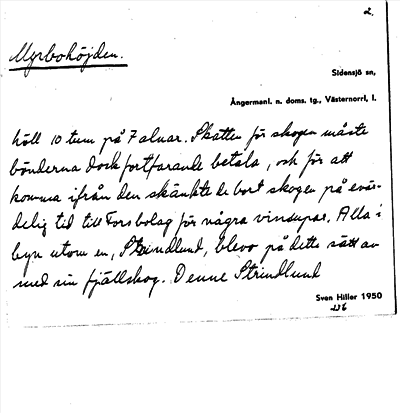 2.
Myrbohöjden.
Sidensjö sn,
Ångermanl. n. doms. tg., Västernorrl, l.
höll 10 tum på 7 alnar. Skatten för skogen måste
bönderna dock fortfarande betala, och för att
komma ifrån den skänkte de bort skogen på evär-
delig tid till Forsbolag för några vinsupar. Alla i
byn utom en, Strindlund, blevo på detta sätt av
med sin fjällskog. Denne Strindlund
Sven Hiller 1950
236